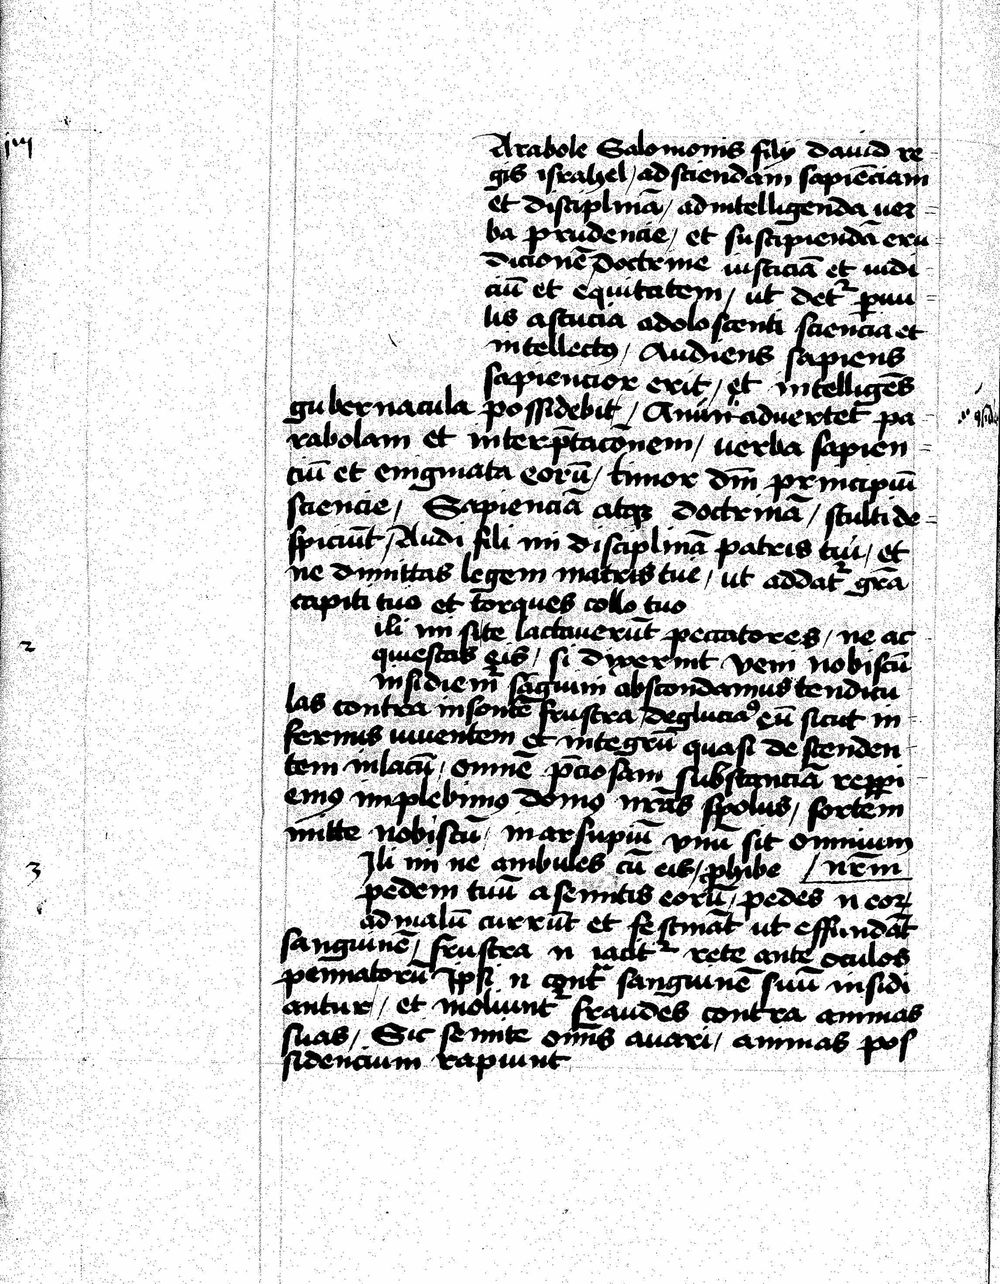 Arabole Salomonis filij dauid re
gis israhel / ad sciendam sapienciam
et disciplinā / ad intelligenda uer
ba prudencie / et suscipiendā eru
dicionē doctrine iusticiā et iudi
ciū et equitatem / ut det᷑ paruu
lis astucia adolescenti sciencia et
intellectꝰ / Audiens sapiens
sapiencior erit / et intelligēs
gubernacula possidebit / Animaduertet pa
rabolam et interp̄tacōnem / uerba sapien
ciū et enigmata eorū / timor dn̄i principiū
sciencie / Sapienciā atqꝫ doctrinā / stulti de
spiciūt / Audi fili mi disciplinā patris tui / et
ne dimittas legem matris tue / ut addat᷑ grā
capiti tuo et torques collo tuo
ili mi si te lactauerūt peccatores / ne ac
quiescas eis / si dixerint veni nobiscū
insidiem᷑ sāguini abscondamus tendicu
las contra insontē frustra / deglutiaꝰ eū sicut in
fernus uiuentem et integrū quasi descenden
tem in lacū / omnē p̄ciosam substanciā repperi
emꝰ implebimꝰ domꝰ nrās spolijs / sortem
mitte nobiscū / marsupiū vnū sit omnium
nr̄m
Ili mi ne ambules cū eis / ꝓhibe
pedem tuū a semitis eorū / pedes n̄ eoꝝ
ad malū currūt et festināt ut effundāt
sanguinē / frustra n̄ iacit᷑ rete ante oculos
pennatorū Ipsi n̄ cont᷑ sanguinē suū insidi
antur / et moliunt᷑ fraudes contra animas
suas / Sic semite om̄is auari / animas pos
sidencium rapiunt
2
3